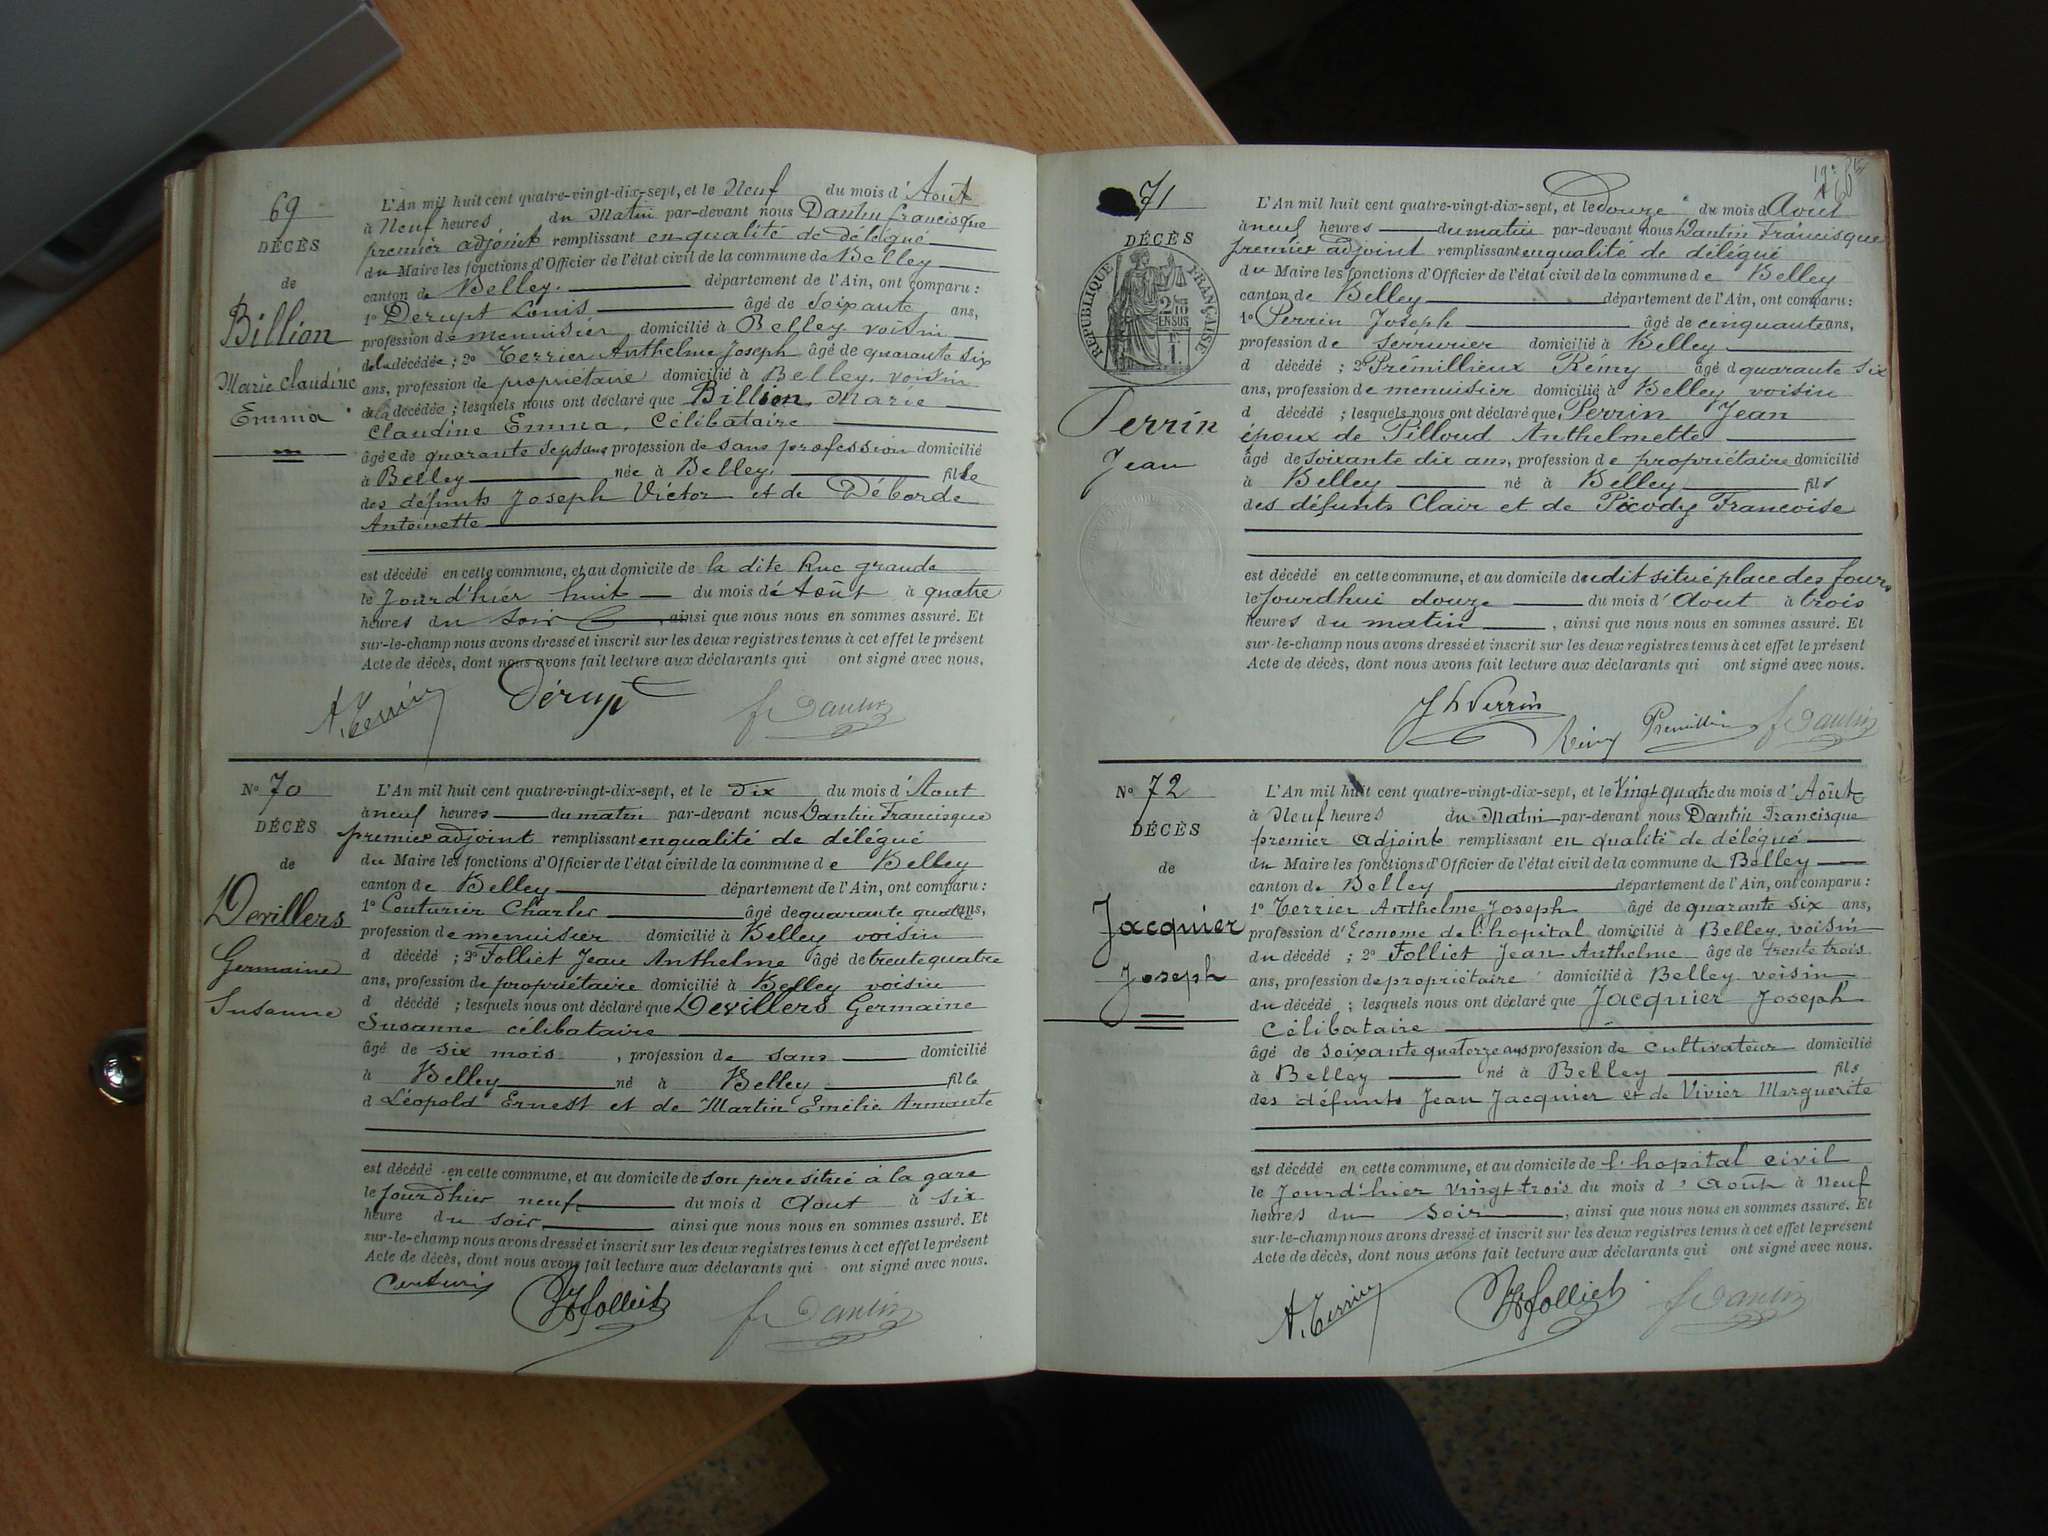 69
DÉCÈS
de
Billion
Marie Claudine
Emma
L'An mil huit cent quatre-vingt-dix-sept, et le Neuf du mois d'Août
à Neuf heures du Matin par-devant nous Dantin francisque
premier adjoint remplissant en qualité de délégué
du Maire les fonctions d'Officier de l'état civil de la commune de Belley
canton de Belley. département de l'Ain, ont comparu :
1° Dérupt Louis âgé de soixante ans,
profession de menuisier domicilié à Belley voisin
de la décédée ; 2° Terrier Anthelme Joseph âgé de quarante six
ans, profession de propriétaire domicilié à Belley. voisin
de la décédée ; lesquels nous ont déclaré que Billion Marie
Claudine Emma. Célibataire
âgée de quarante sept ans profession de sans profession domicilié
à Belley née à Belley. fille
des défunts Joseph Victor et de Déborde
Antoinette
est décédé en cette commune, et au domicile de la dite Rue grande
le Jourd'hier huit du mois d'Août à quatre
heures du soir ainsi que nous nous en sommes assuré. Et
sur-le-champ nous avons dressé et inscrit sur les deux registres tenus à cet effet le présent
Acte de décès, dont nous avons fait lecture aux déclarants qui ont signé avec nous.
A. Terrier Dérupt f Dantin
N° 70
DÉCÈS
de
Devillers
Germaine
Susanne
L'An mil huit cent quatre-vingt-dix-sept, et le Dix du mois d'Aout
à neuf heures du matin par-devant nous Dantin Francisque
premier adjoint remplissant en qualité de délégué
du Maire les fonctions d'Officier de l'état civil de la commune de Belley
canton de Belley département de l'Ain, ont comparu :
1° Couturier Charles âgé de quarante quatre ans,
profession de menuisier domicilié à Belley voisin
d décédé ; 2° Folliet Jean Anthelme âgé de trente quatre
ans, profession de propriétaire domicilié à Belley voisin
d décédé ; lesquels nous ont déclaré que Devillers Germaine
Susanne célibataire
âgé de six mois , profession de sans domicilié
à Belley né à Belley fille
d Léopold Ernest et de Martin Emélie Armante
est décédé en cette commune, et au domicile de son père situé à la gare
le jourdhier neuf du mois d Aout à six
heure du soir ainsi que nous nous en sommes assuré. Et
sur-le-champ nous avons dressé et inscrit sur les deux registres tenus à cet effet le présent
Acte de décès, dont nous avons fait lecture aux déclarants qui ont signé avec nous.
Folliet f Dantin
71
DÉCÈS
RÉPUBLIQUE FRANÇAISE
2/10 EN SUS
1.
Perrin
Jean
L'An mil huit cent quatre-vingt-dix-sept, et le douze du mois d Aout
à neuf heures du matin par-devant nous Dantin Francisque
premier adjoint remplissant en qualité de délégué
du Maire les fonctions d'Officier de l'état civil de la commune de Belley
canton de Belley département de l'Ain, ont comparu :
1° Perrin Joseph âgé de cinquante ans,
profession de serrurier domicilié à Belley
d décédé ; 2° Prémillieux Rémy âgé d quarante six
ans, profession de menuisier domicilié à Belley voisin
d décédé ; lesquels nous ont déclaré que Perrin Jean
époux de Pilloud Anthelmette
âgé de soixante dix ans, profession de propriétaire domicilié
à Belley né à Belley fils
des défunts Clair et de Picody Francoise
est décédé en cette commune, et au domicile dudit situé place des fours
le jourdhui douze du mois d'Aout à trois
heures du matin , ainsi que nous nous en sommes assuré. Et
sur-le-champ nous avons dressé et inscrit sur les deux registres tenus à cet effet le présent
Acte de décès, dont nous avons fait lecture aux déclarants qui ont signé avec nous.
Jh Perrin Rémy f Dantin
N° 72
DÉCÈS
de
Jacquier
Joseph
L'An mil huit cent quatre-vingt-dix-sept, et le Vingt quatre du mois d'Août
à Neuf heures du Matin par-devant nous Dantin Francisque
premier adjoint remplissant en qualité de délégué
du Maire les fonctions d'Officier de l'état civil de la commune de Belley
canton de Belley département de l'Ain, ont comparu :
1° Terrier Anthelme Joseph âgé de quarante six ans,
profession d'Econome de l'hopital domicilié à Belley. voisin
du décédé ; 2° Folliet Jean Anthelme âge de trente trois
ans, profession de propriétaire domicilié à Belley voisin
du décédé ; lesquels nous ont déclaré que Jacquier Joseph
Célibataire
âgé de soixante quatorze ans profession de cultivateur domicilié
à Belley né à Belley fils
des défunts Jean Jacquier et de Vivier Marguerite
est décédé en cette commune, et au domicile de l'hopital civil
le Jourd'hier vingt trois du mois d'Août à Neuf
heures du soir , ainsi que nous nous en sommes assuré. Et
sur-le-champ nous avons dressé et inscrit sur les deux registres tenus à cet effet le présent
Acte de décès, dont nous avons fait lecture aux déclarants qui ont signé avec nous.
A. Terrier Folliet f Dantin